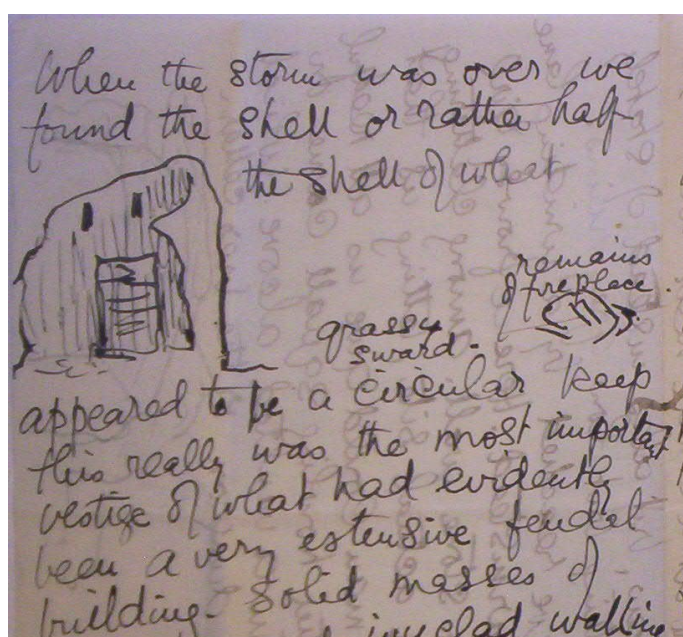 When the storm was over we
found the shell or rather half
the shell of what
remains
of fireplace.
grassy
sward.
appeared to be a circular keep
this really was the most important
vestige of what had evidently
been a very extensive feudal
building. Solid masses of
ivyclad walling